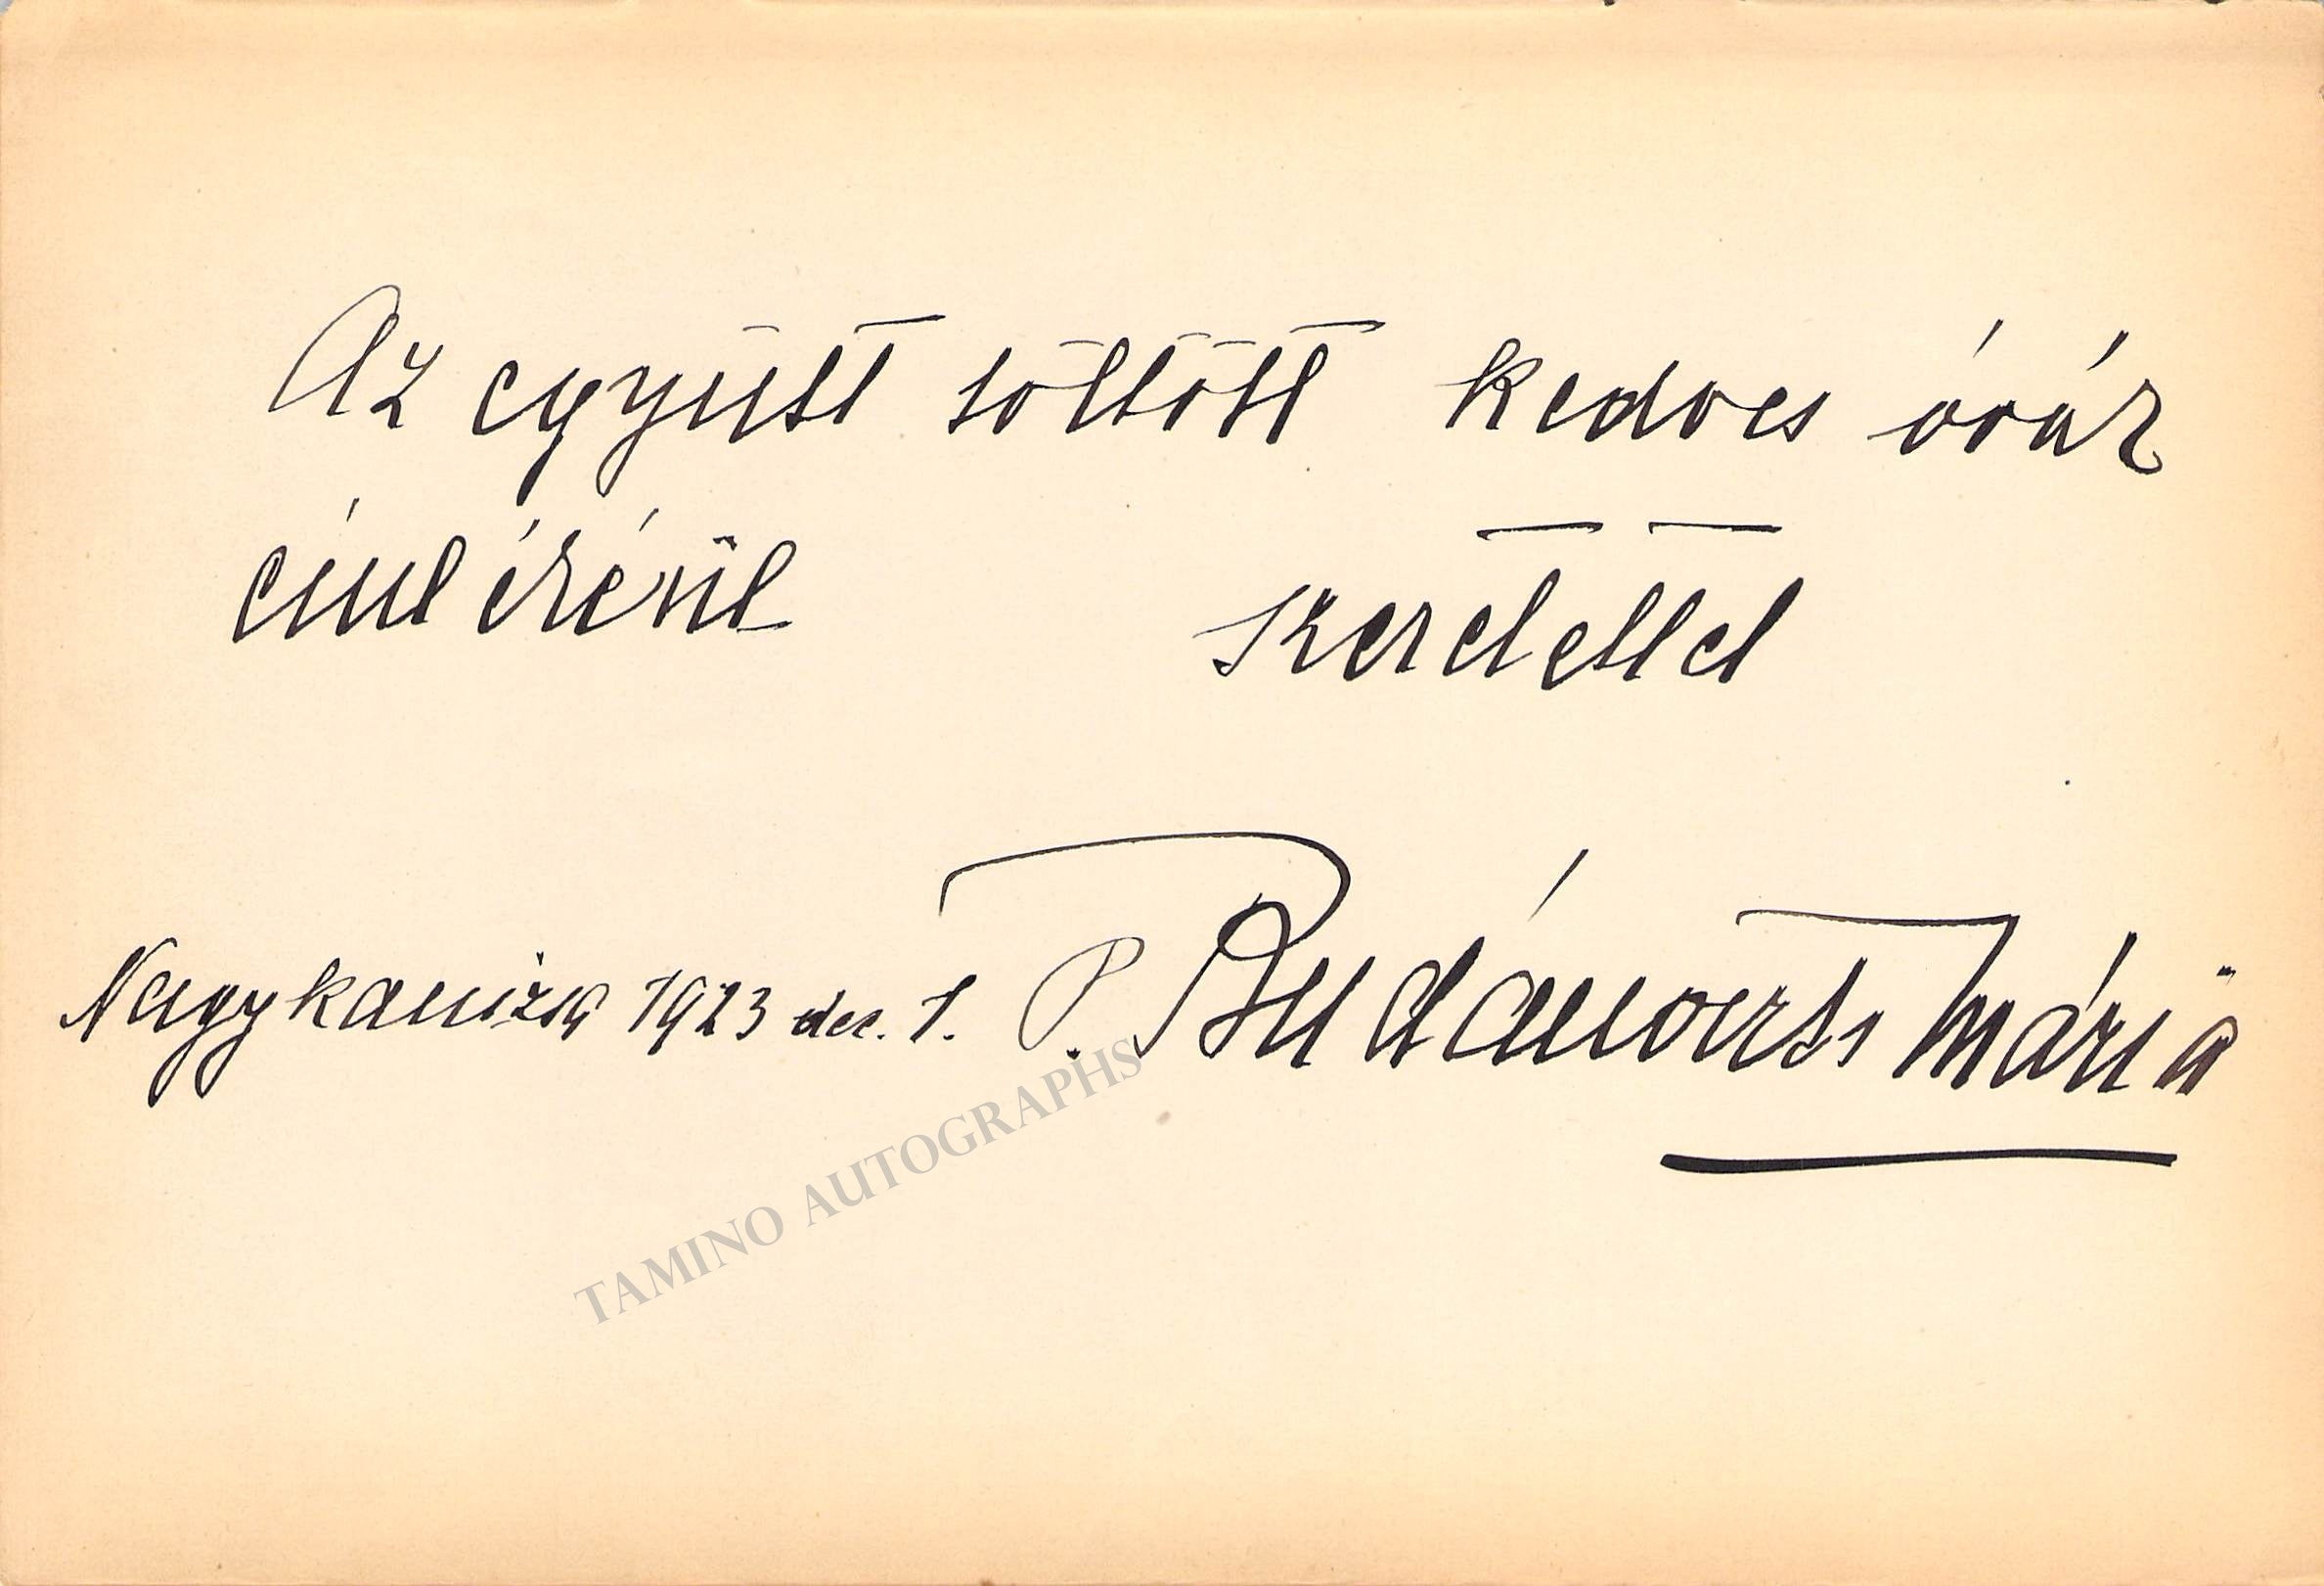 Az együtt töltött kedves órák
emlékéül szeretettel
Nagykanizsa 1923 dec. 1. P. Budánovits Mária
TAMINO AUTOGRAPHS